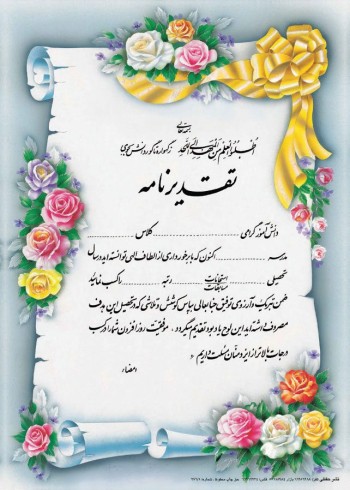 بسمه تعالی
اطلبوا العلم من المهد الی اللحد ز گهواره تا گور دانش بجوی
تقدیرنامه
دانش آموز گرامی کلاس
مدرسه اکنون که با برخورداری از الطاف الهی توانسته اید در سال
تحصیلی امتحانات مسابقات رتبه را کسب نمائید
ضمن تبریک و آرزوی توفیق جنابعالی بپاس کوشش و تلاشی که در تحصیل این هدف
مصروف داشته اید این لوح یادبود تقدیم میگردد. موفقیت روزافزون شما در کسب
درجات بالاتر از ایزد منان مسئلت داریم
امضاء